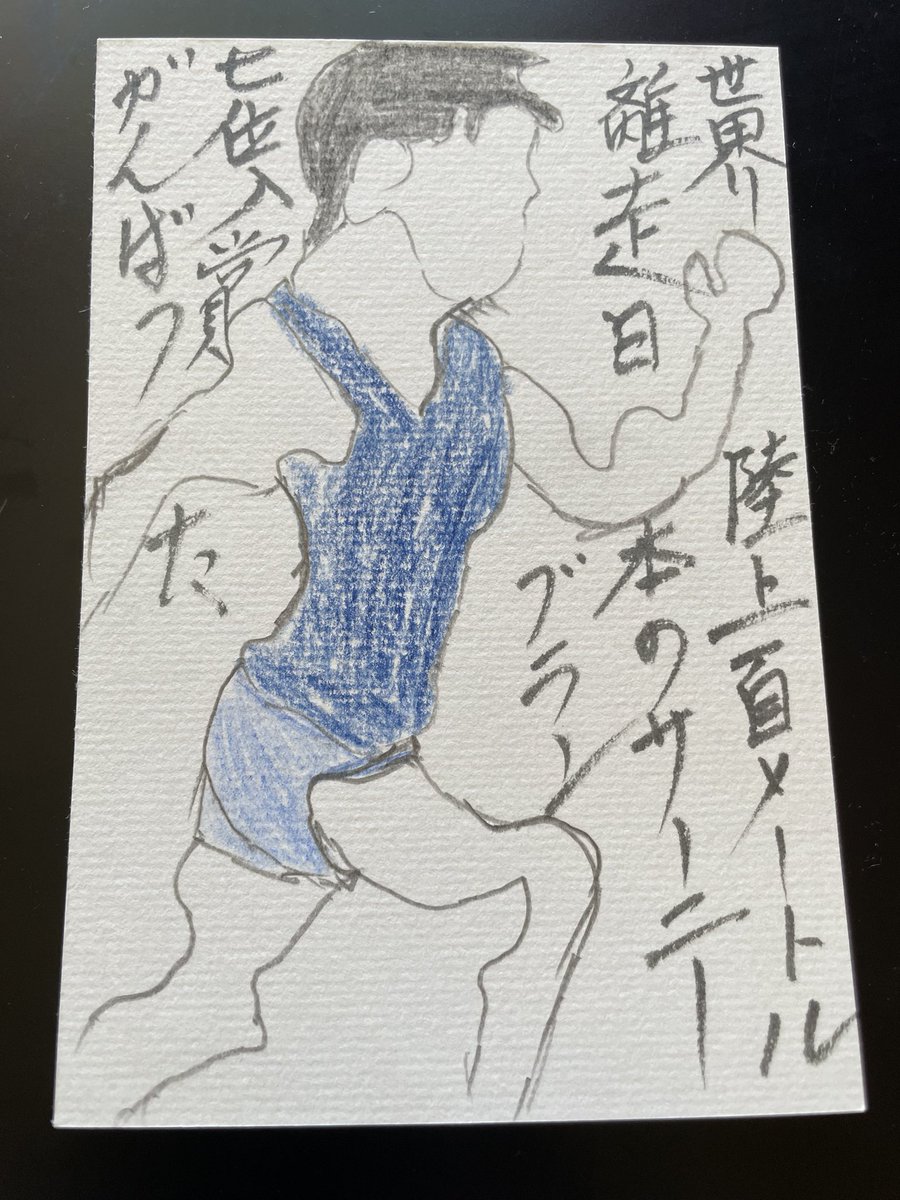 世界リ陸上百メートル
離走日本のサーニー
ブラン
七位入賞
がんばつた